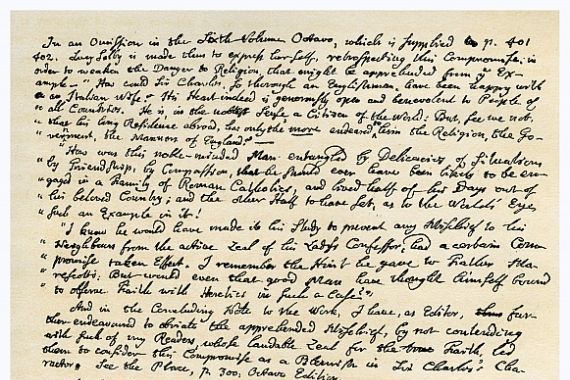 In an Omission in the Sixth Volume Octavo, which is supplied p. 401
402. Lucy Selby is made thus to express herself, retrospecting this Compromise; in
order to weaken the Danger to Religion, that might be apprehended from ye Ex-
ample — "How could Sir Charles, so thorough an Englishman, have been happy with
" an Italian Wife? His Heart indeed is generously open and benevolent to People of
" all Countries. He is in the noblest Sense a Citizen of the World: But, see we not,
" that his long Residence abroad, has only the more endeared to him the Religion, the Go-
" vernment, the Manners of England? —
" How was this noble-minded Man entangled by Delicacies of Situation,
" by Friendship, by Compassion, that he should ever have been likely to be en-
" gaged in a Family of Roman Catholics, and lived half of his Days out of
" his beloved Country; and the other Half to have set, as to the World's Eye,
" such an Example in it!
" I know he would have made it his Study to prevent any Mischief to his
" Neighbours from the active Zeal of his Lady's Confessor, had a certain Com-
" promise taken Effect. I remember the Hint he gave to Father Ma-
" rescotti: But would even that good Man have thought himself bound
" to observe Faith with Heretics in such a Case?"
And in the Concluding Note to the Work, I have, as Editor, thus fur-
ther endeavoured to obviate the apprehended Mischief, by not contending
with such of my Readers, whose laudable Zeal for the true Faith, led
them to consider this Compromise as a Blemish in Sir Charles's Cha-
racter. See the Place, p. 300, Octavo Edition.